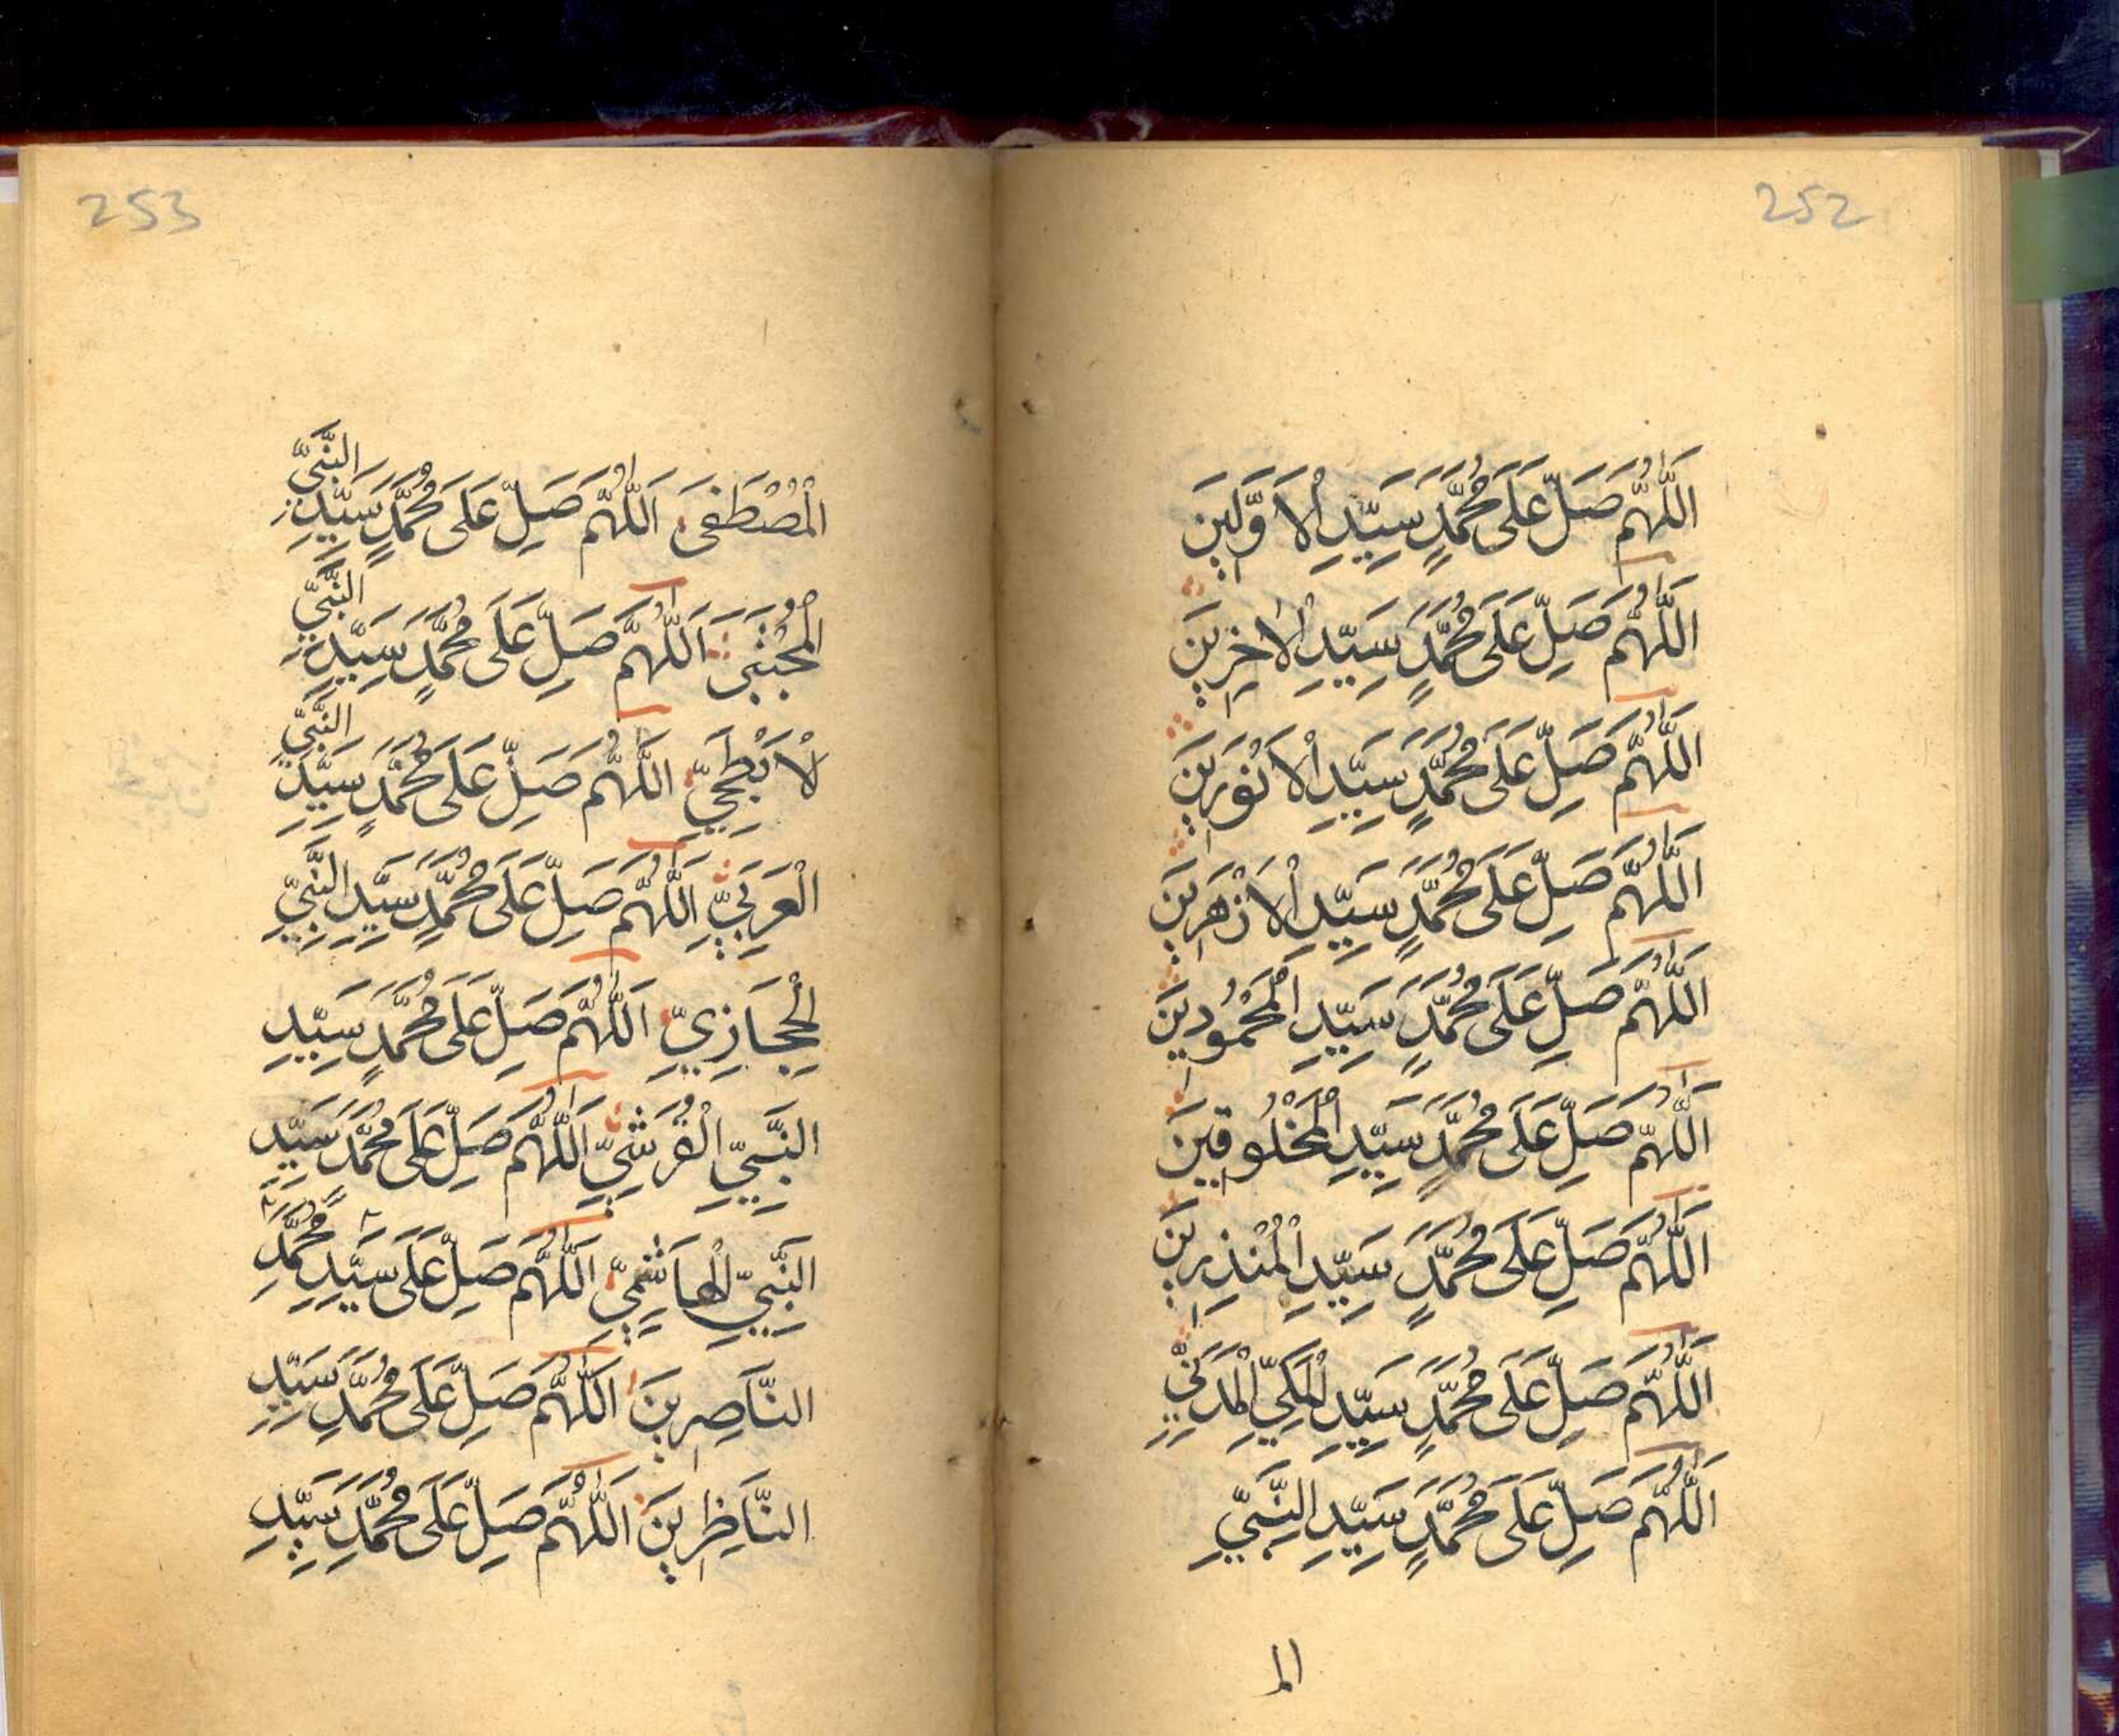 252
اَللّٰهُمَّ صَلِّ عَلَى مُحَمَّدٍ سَيِّدِ الْاَوَّلِينَ
اَللّٰهُمَّ صَلِّ عَلَى مُحَمَّدٍ سَيِّدِ الْاٰخِرِينَ
اَللّٰهُمَّ صَلِّ عَلَى مُحَمَّدٍ سَيِّدِ الْاَنْوَرِينَ
اَللّٰهُمَّ صَلِّ عَلَى مُحَمَّدٍ سَيِّدِ الْاَزْهَرِينَ
اَللّٰهُمَّ صَلِّ عَلَى مُحَمَّدٍ سَيِّدِ الْمَحْمُودِينَ
اَللّٰهُمَّ صَلِّ عَلَى مُحَمَّدٍ سَيِّدِ الْمَخْلُوقِينَ
اَللّٰهُمَّ صَلِّ عَلَى مُحَمَّدٍ سَيِّدِ الْمُنْذِرِينَ
اَللّٰهُمَّ صَلِّ عَلَى مُحَمَّدٍ سَيِّدِ الْمَكِّيِّ الْمَدَنِيِّ
اَللّٰهُمَّ صَلِّ عَلَى مُحَمَّدٍ سَيِّدِ النَّبِيِّ
الم
253
الْمُصْطَفَى اَللّٰهُمَّ صَلِّ عَلَى مُحَمَّدٍ سَيِّدِ النَّبِيِّ
الْمُجْتَبَى اَللّٰهُمَّ صَلِّ عَلَى مُحَمَّدٍ سَيِّدِ النَّبِيِّ
لْاَبْطَحِيِّ اَللّٰهُمَّ صَلِّ عَلَى مُحَمَّدٍ سَيِّدِ النَّبِيِّ
الْعَرَبِيِّ اَللّٰهُمَّ صَلِّ عَلَى مُحَمَّدٍ سَيِّدِ النَّبِيِّ
الْحِجَازِيِّ اَللّٰهُمَّ صَلِّ عَلَى مُحَمَّدٍ سَيِّدِ
النَّبِيِّ الْقُرَشِيِّ اَللّٰهُمَّ صَلِّ عَلَى مُحَمَّدٍ سَيِّدِ
النَّبِيِّ الْهَاشِمِيِّ اَللّٰهُمَّ صَلِّ عَلَى سَيِّدِ مُحَمَّدٍ
النَّاصِرِينَ اَللّٰهُمَّ صَلِّ عَلَى مُحَمَّدٍ سَيِّدِ
النَّاظِرِينَ اَللّٰهُمَّ صَلِّ عَلَى مُحَمَّدٍ سَيِّدِ